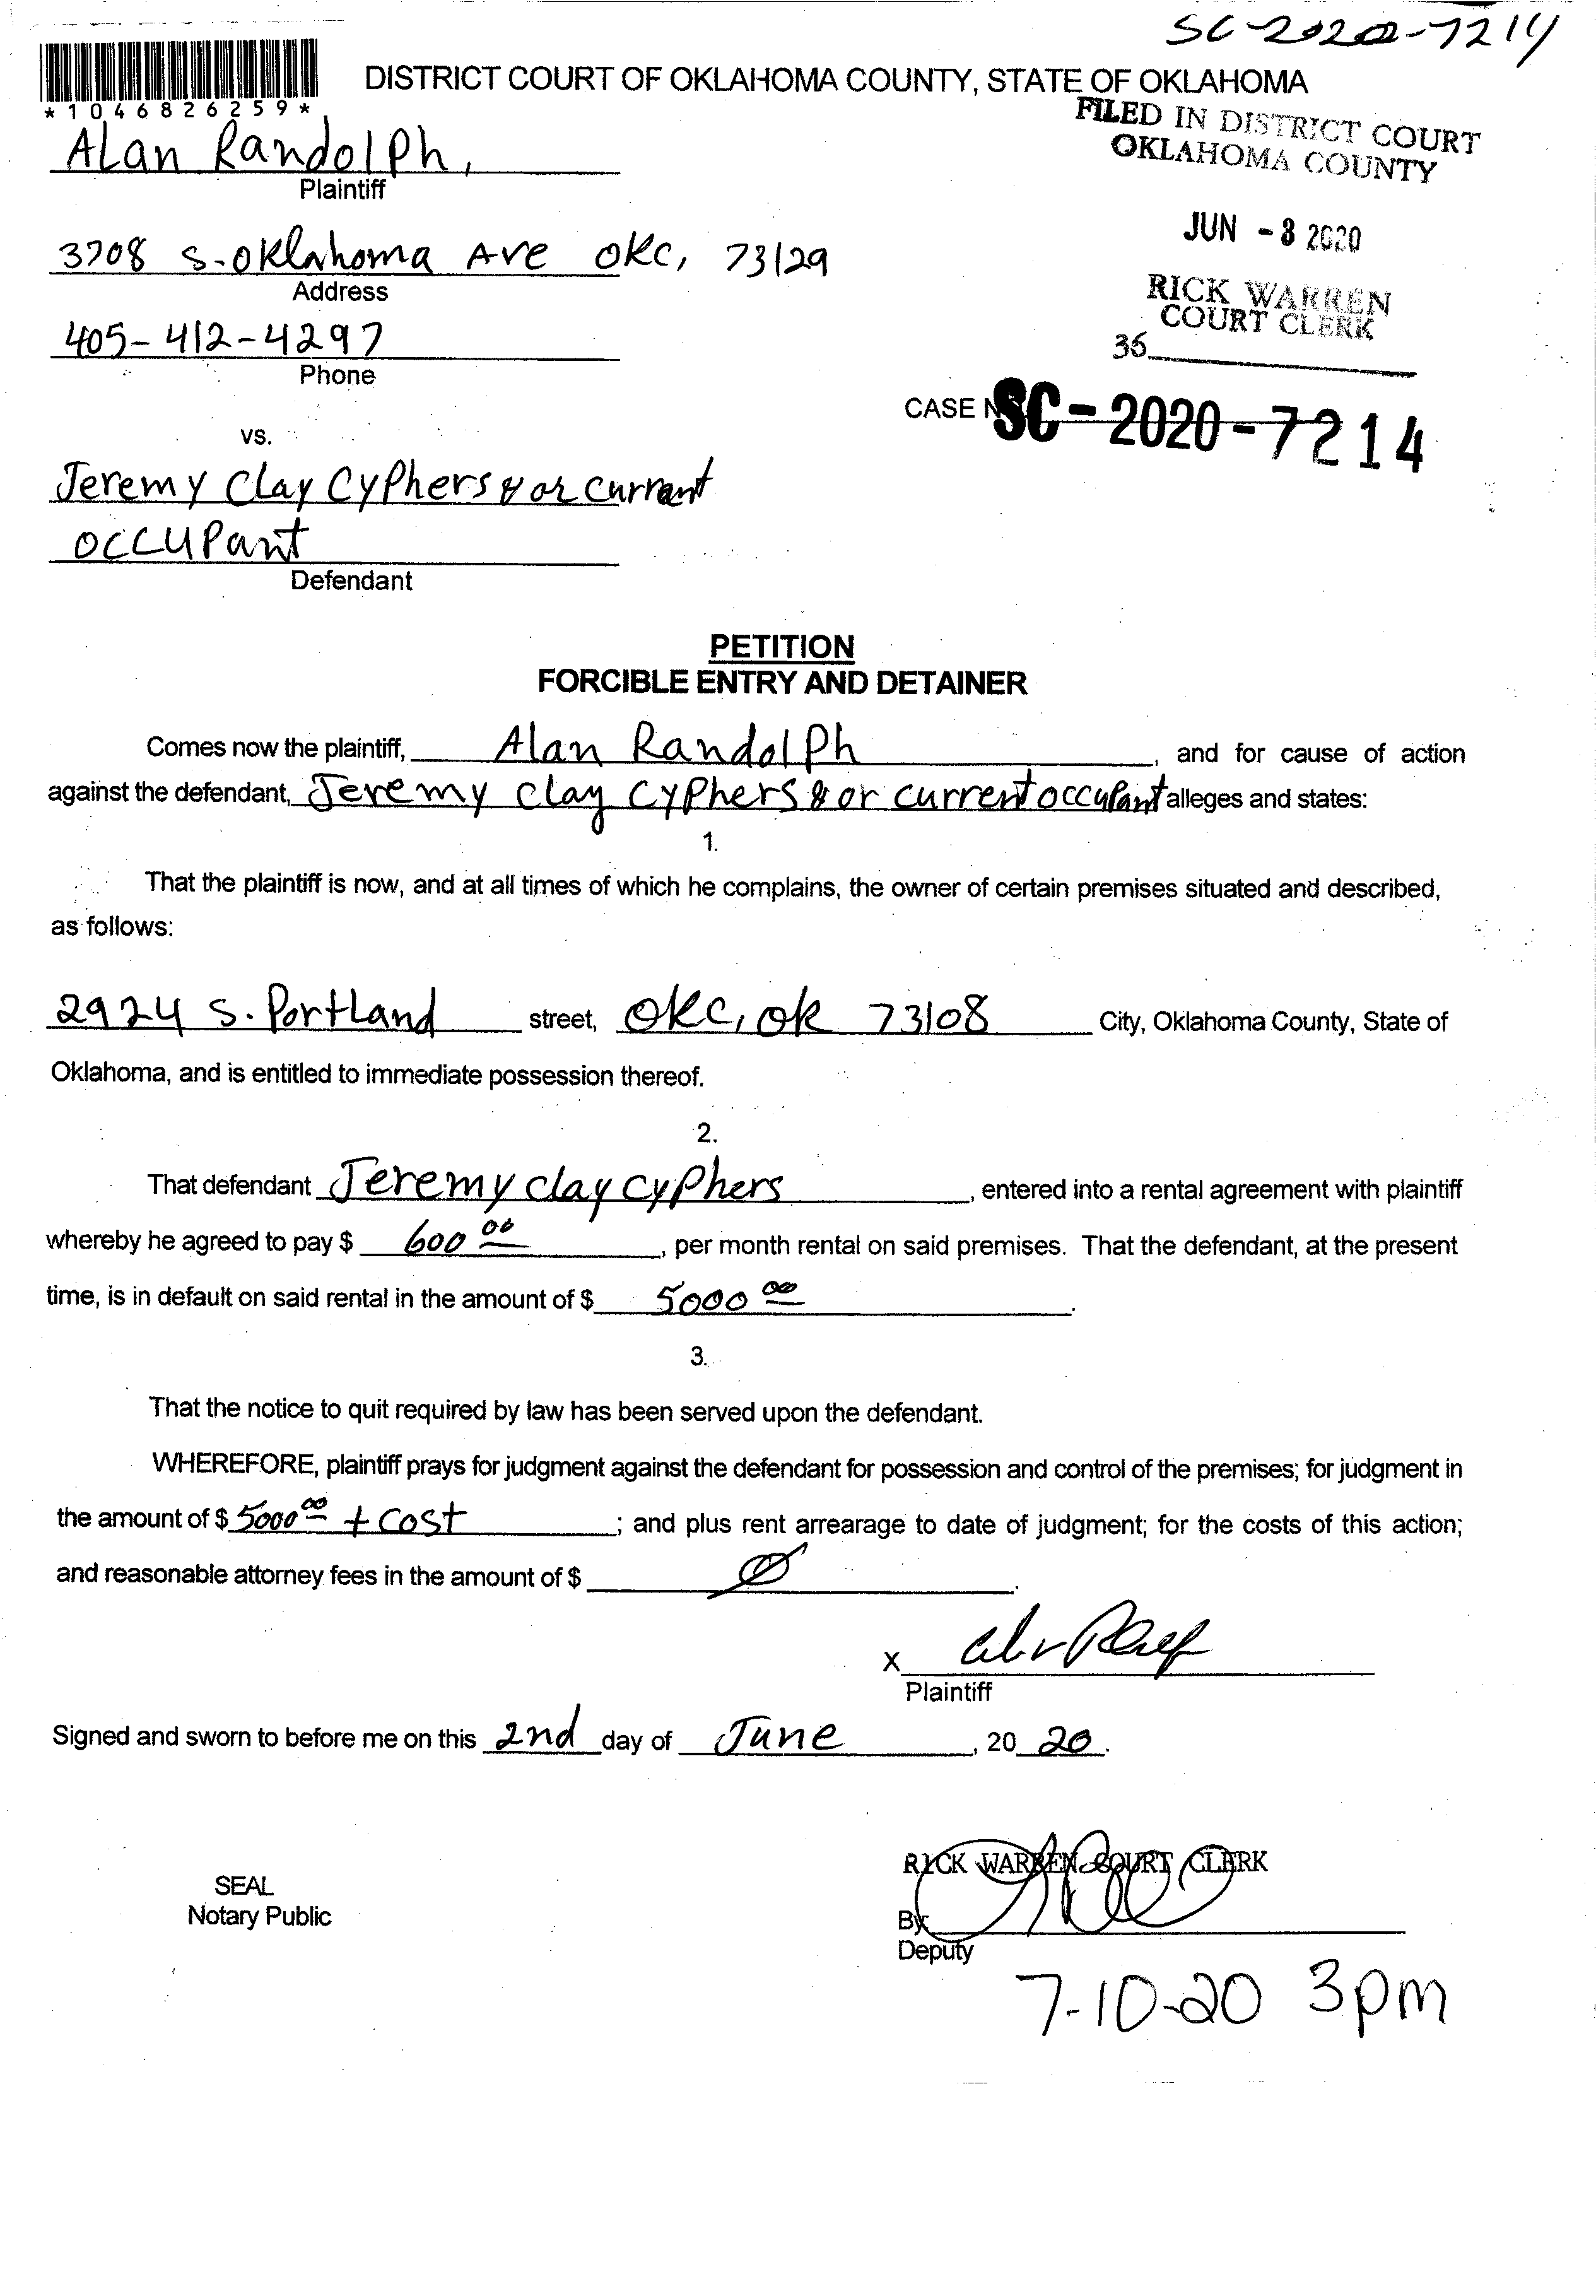 SC-2020-7214
*1046826259*
DISTRICT COURT OF OKLAHOMA COUNTY, STATE OF OKLAHOMA
FILED IN DISTRICT COURT
OKLAHOMA COUNTY
Alan Randolph,
Plaintiff
JUN -3 2020
3708 S. Oklahoma Ave OKC, 73129
Address
RICK WARREN
COURT CLERK
405-412-4297
Phone
36
CASE NO. SC-2020-7214
vs.
Jeremy Clay Cyphers & or current
occupant
Defendant
PETITION
FORCIBLE ENTRY AND DETAINER
Comes now the plaintiff, Alan Randolph, and for cause of action
against the defendant, Jeremy clay cyphers & or current occupant alleges and states:
1.
That the plaintiff is now, and at all times of which he complains, the owner of certain premises situated and described,
as follows:
2924 S. Portland street, OKC, OK 73108 City, Oklahoma County, State of
Oklahoma, and is entitled to immediate possession thereof.
2.
That defendant Jeremy clay cyphers, entered into a rental agreement with plaintiff
whereby he agreed to pay $ 600 00, per month rental on said premises. That the defendant, at the present
time, is in default on said rental in the amount of $ 5000 00.
3.
That the notice to quit required by law has been served upon the defendant.
WHEREFORE, plaintiff prays for judgment against the defendant for possession and control of the premises; for judgment in
the amount of $ 5000 00 + cost; and plus rent arrearage to date of judgment; for the costs of this action;
and reasonable attorney fees in the amount of $ Ø.
X
Plaintiff
Signed and sworn to before me on this 2nd day of June, 20 20.
RICK WARREN COURT CLERK
SEAL
Notary Public
By
Deputy
7-10-20 3pm